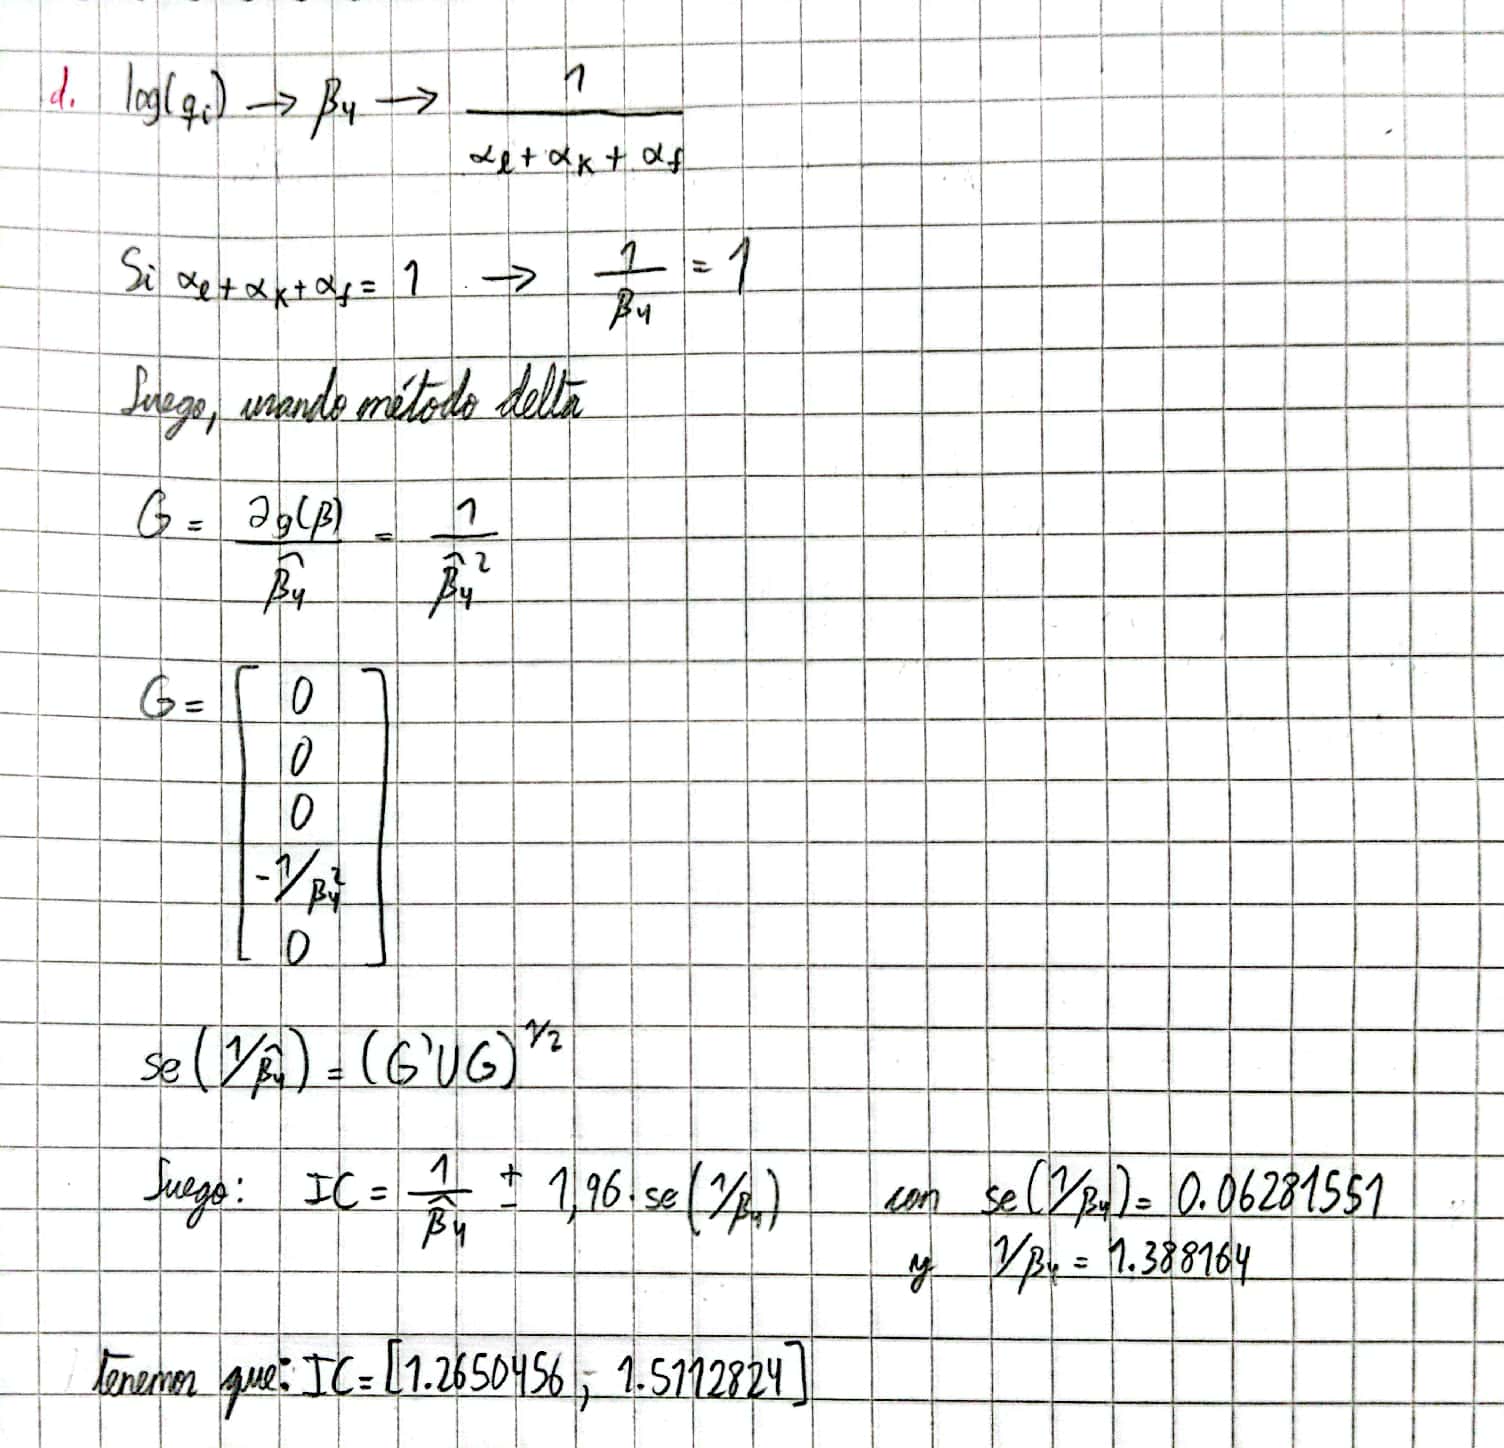 d. log(qi) → β4 → 1/(αl + αK + αf)
Si αl + αK + αf = 1 → 1/β4 = 1
Luego, usando método delta
G = ∂g(β)/β̂4 = 1/β̂4²
G = [ 0
0
0
-1/β4²
0 ]
se(1/β̂4) = (G'VG)^1/2
Luego: IC = 1/β̂4 ± 1,96·se(1/β4) con se(1/β4) = 0.06281551
y 1/β4 = 1.388164
tenemos que: IC = [1.2650456 ; 1.5112824]